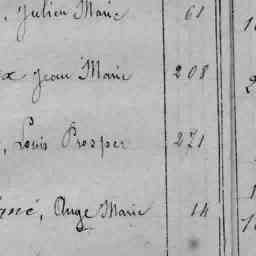 , Julien Marie 61
Jean Marie 208
, Louis Prosper 271
, Ange Marie 14